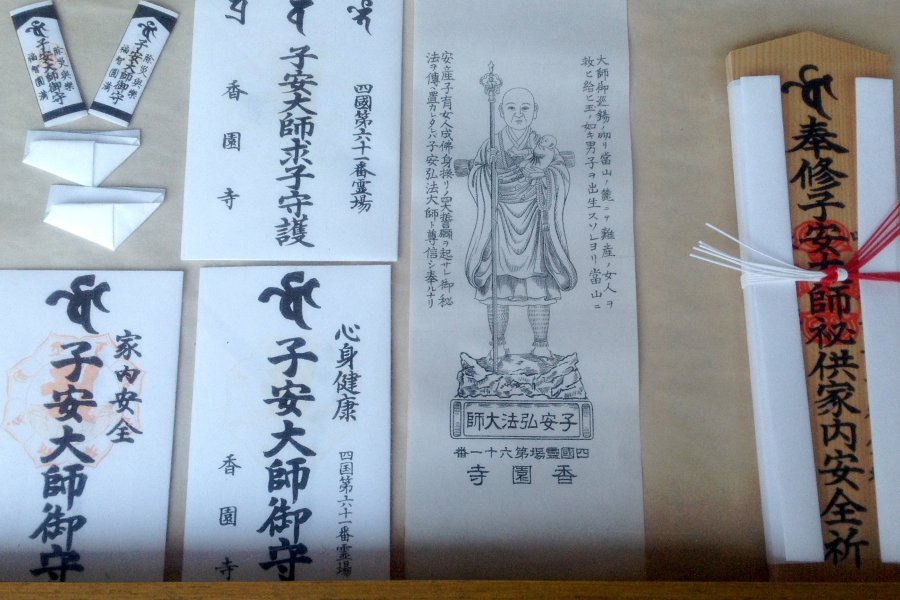 除災與楽
子安大師御守
福智圓満
除災與楽
子安大師御守
福智圓満
四國第六十一番霊場
子安大師求子守護
香園寺
家内安全
子安大師御守
心身健康
四国第六十一番霊場
子安大師御守
香園寺
大師御巡錫ノ砌リ當山ノ麓ニテ難産ノ女人ヲ
救ヒ給ヒ玉ノ如キ男子ヲ出生スソレヨリ當山ニ
安産子有女人成佛身換リノ四大誓願ヲ起サレ御秘
法ヲ傳ヘ置カレタレバ子安弘法大師ト尊信シ奉ルナリ
子安弘法大師
四國靈場第六十一番
香園寺
奉修子安大師祕供家内安全祈